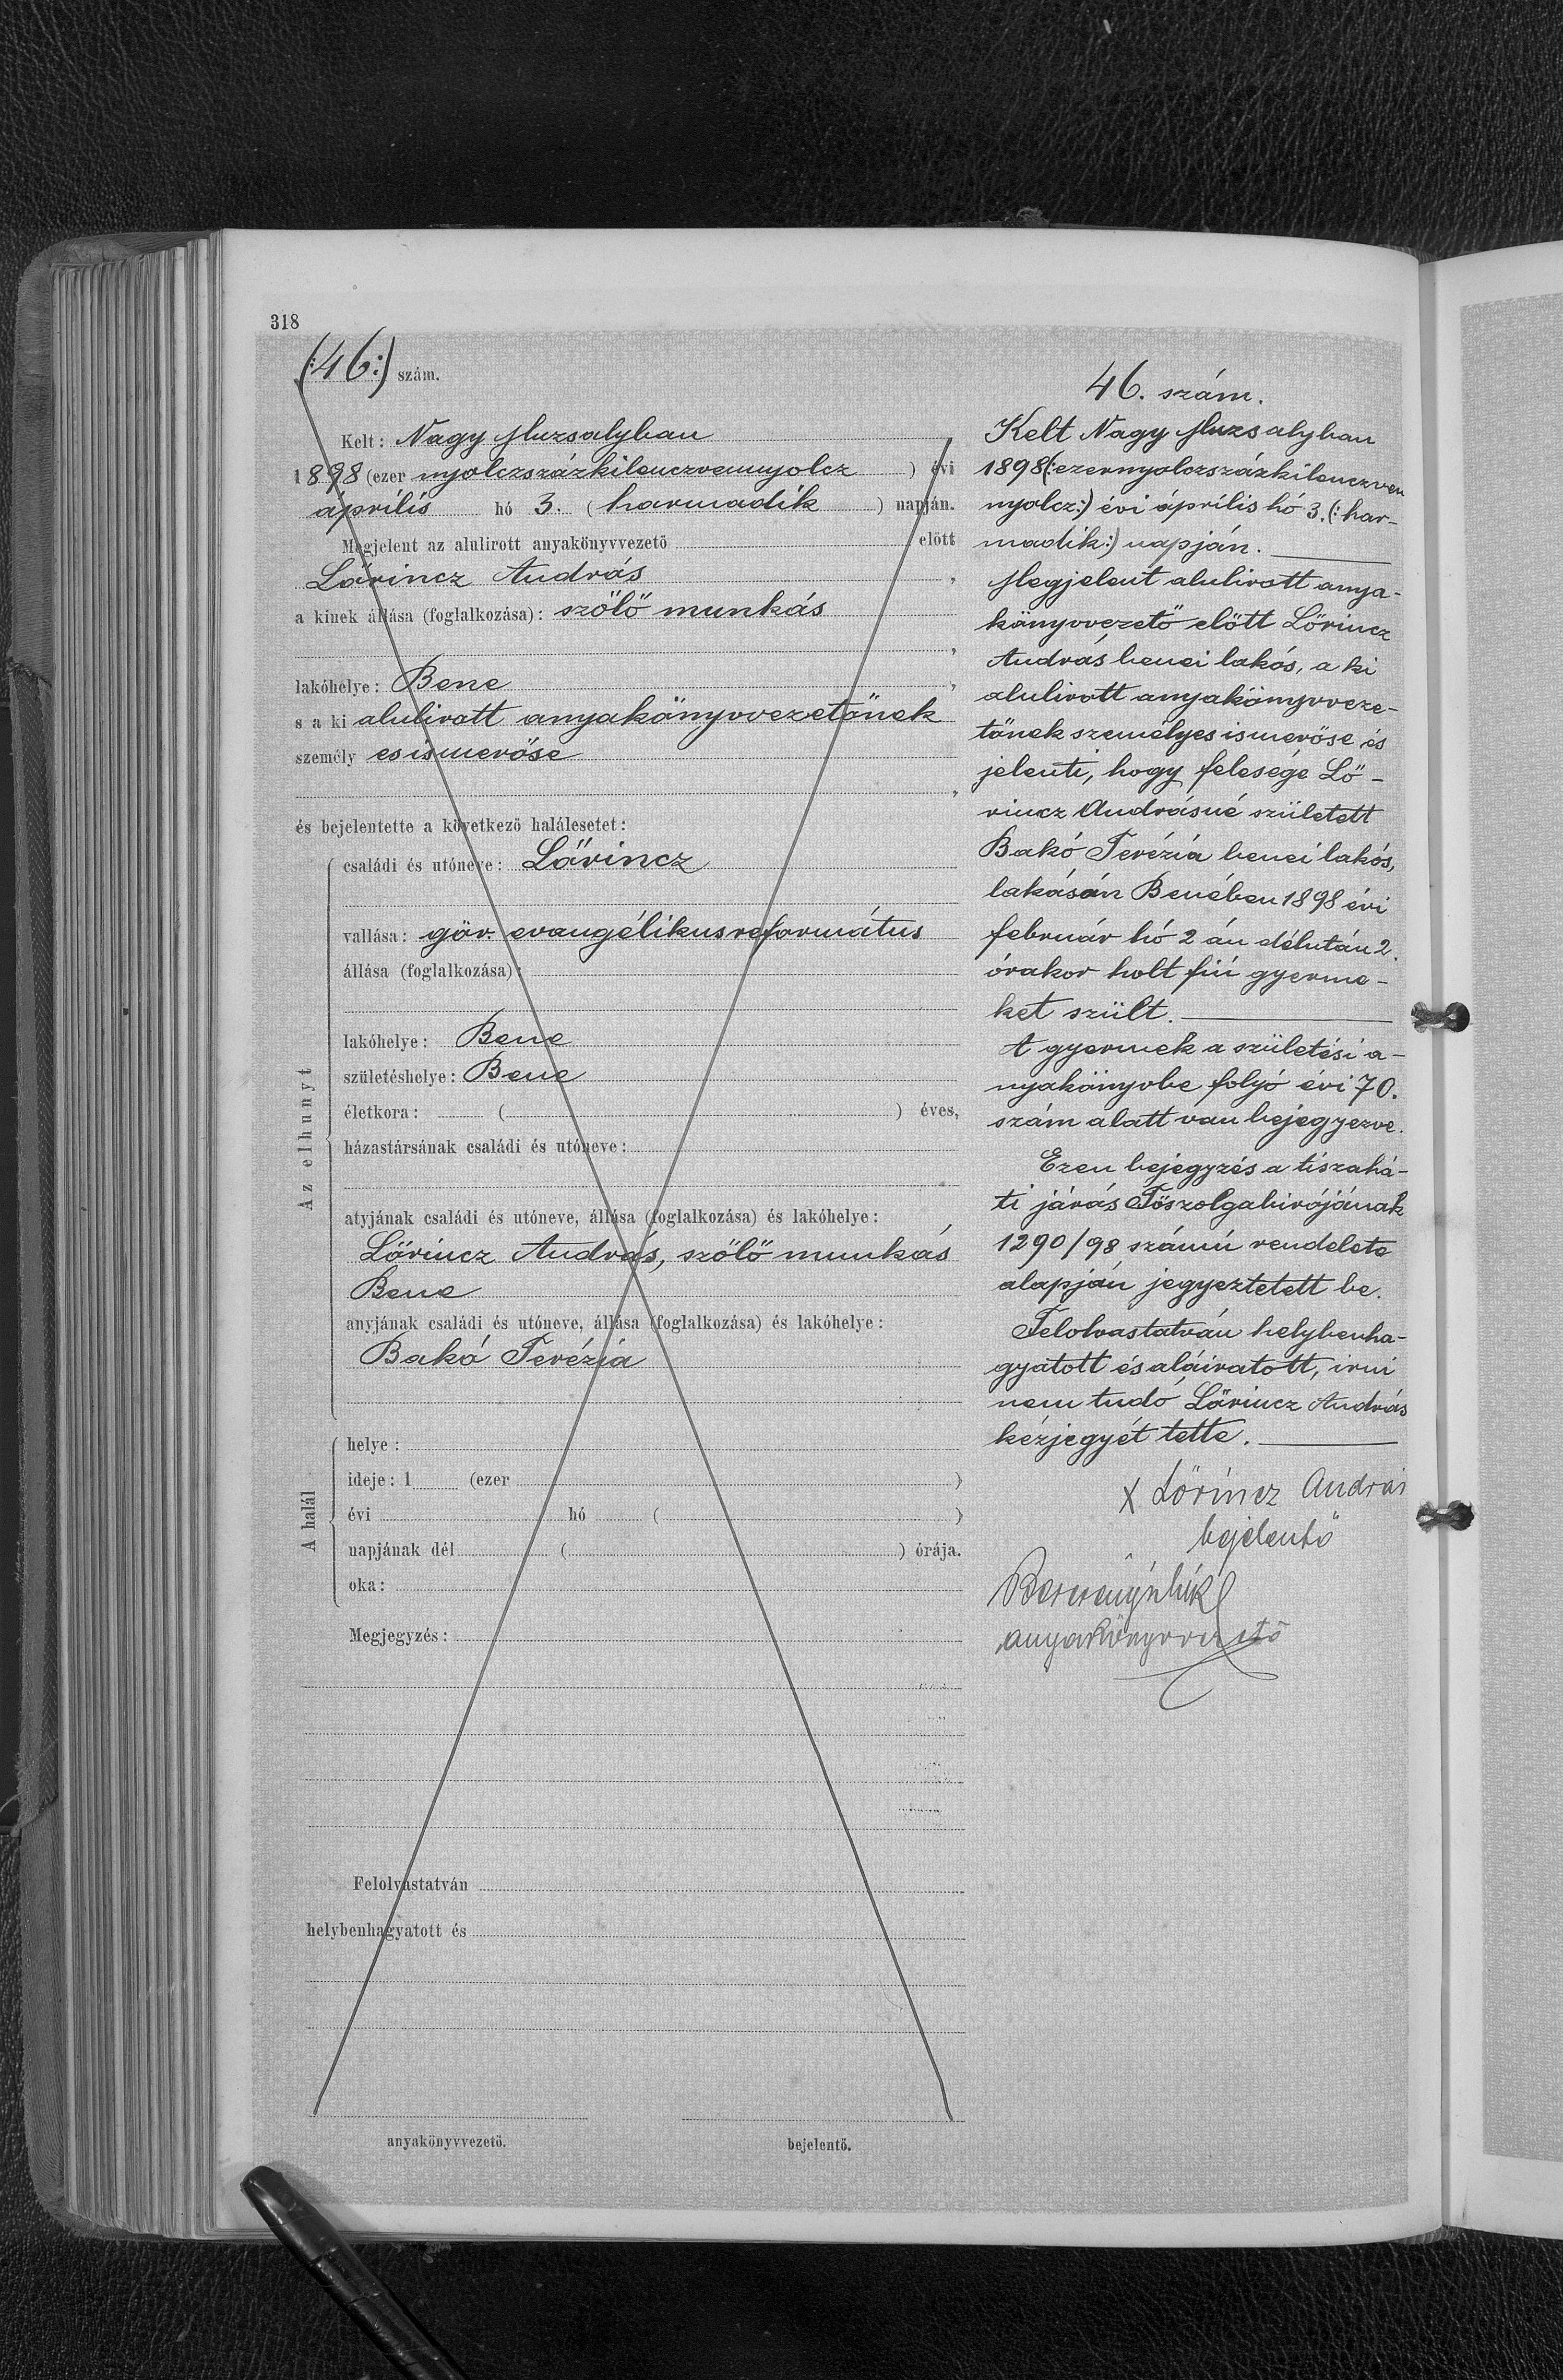 318
(:46:) szám.
Kelt: Nagy Muzsalyban
1898 (ezer nyolczszázkilenczvennyolcz ) évi
április hó 3. ( harmadik ) napján.
Megjelent az alulirott anyakönyvvezető előtt
Lőrincz András ,
a kinek állása (foglalkozása): szőlő munkás
,
lakóhelye: Bene ,
s a ki alulirott anyakönyvvezetőnek
személy esismerőse
,
és bejelentette a következő halálesetet:
Az elhunyt
családi és utóneve: Lőrincz
vallása: gör. evangélikusreformátus
állása (foglalkozása):
lakóhelye: Bene
születéshelye: Bene
életkora: ( ) éves,
házastársának családi és utóneve:
atyjának családi és utóneve, állása (foglalkozása) és lakóhelye:
Lőrincz András, szőlő munkás
Bene
anyjának családi és utóneve, állása (foglalkozása) és lakóhelye:
Bakó Terézia
A halál
helye:
ideje: 1 (ezer )
évi hó ( )
napjának dél ( ) órája.
oka:
Megjegyzés:
Felolvastatván
helybenhagyatott és
anyakönyvvezető. bejelentő.
46. szám.
Kelt Nagy Muzsalyban
1898(:ezernyolczszázkilenczven
nyolcz:) évi április hó 3. (:har-
madik:) napján.
Megjelent alulirott anya-
könyvvezető előtt Lőrincz
András benei lakós, a ki
alulirott anyakönyvveze-
tőnek személyes ismerőse és
jelenti, hogy felesége Lő-
rincz Andrásné született
Bakó Terézia benei lakós,
lakásán Benében 1898 évi
február hó 2 án délután 2.
órakor holt fiú gyerme-
ket szült.
A gyermek a születési a-
nyakönyvbe folyó évi 70.
szám alatt van bejegyezve.
Ezen bejegyzés a tiszahá-
ti járás Főszolgabirójának
1290/98 számú rendelete
alapján jegyeztetett be.
Felolvastatván helybenha-
gyatott és aláiratott, irni
nem tudó Lőrincz András
kézjegyét tette.
X Lőrincz András
bejelentő
anyakönyvvezető